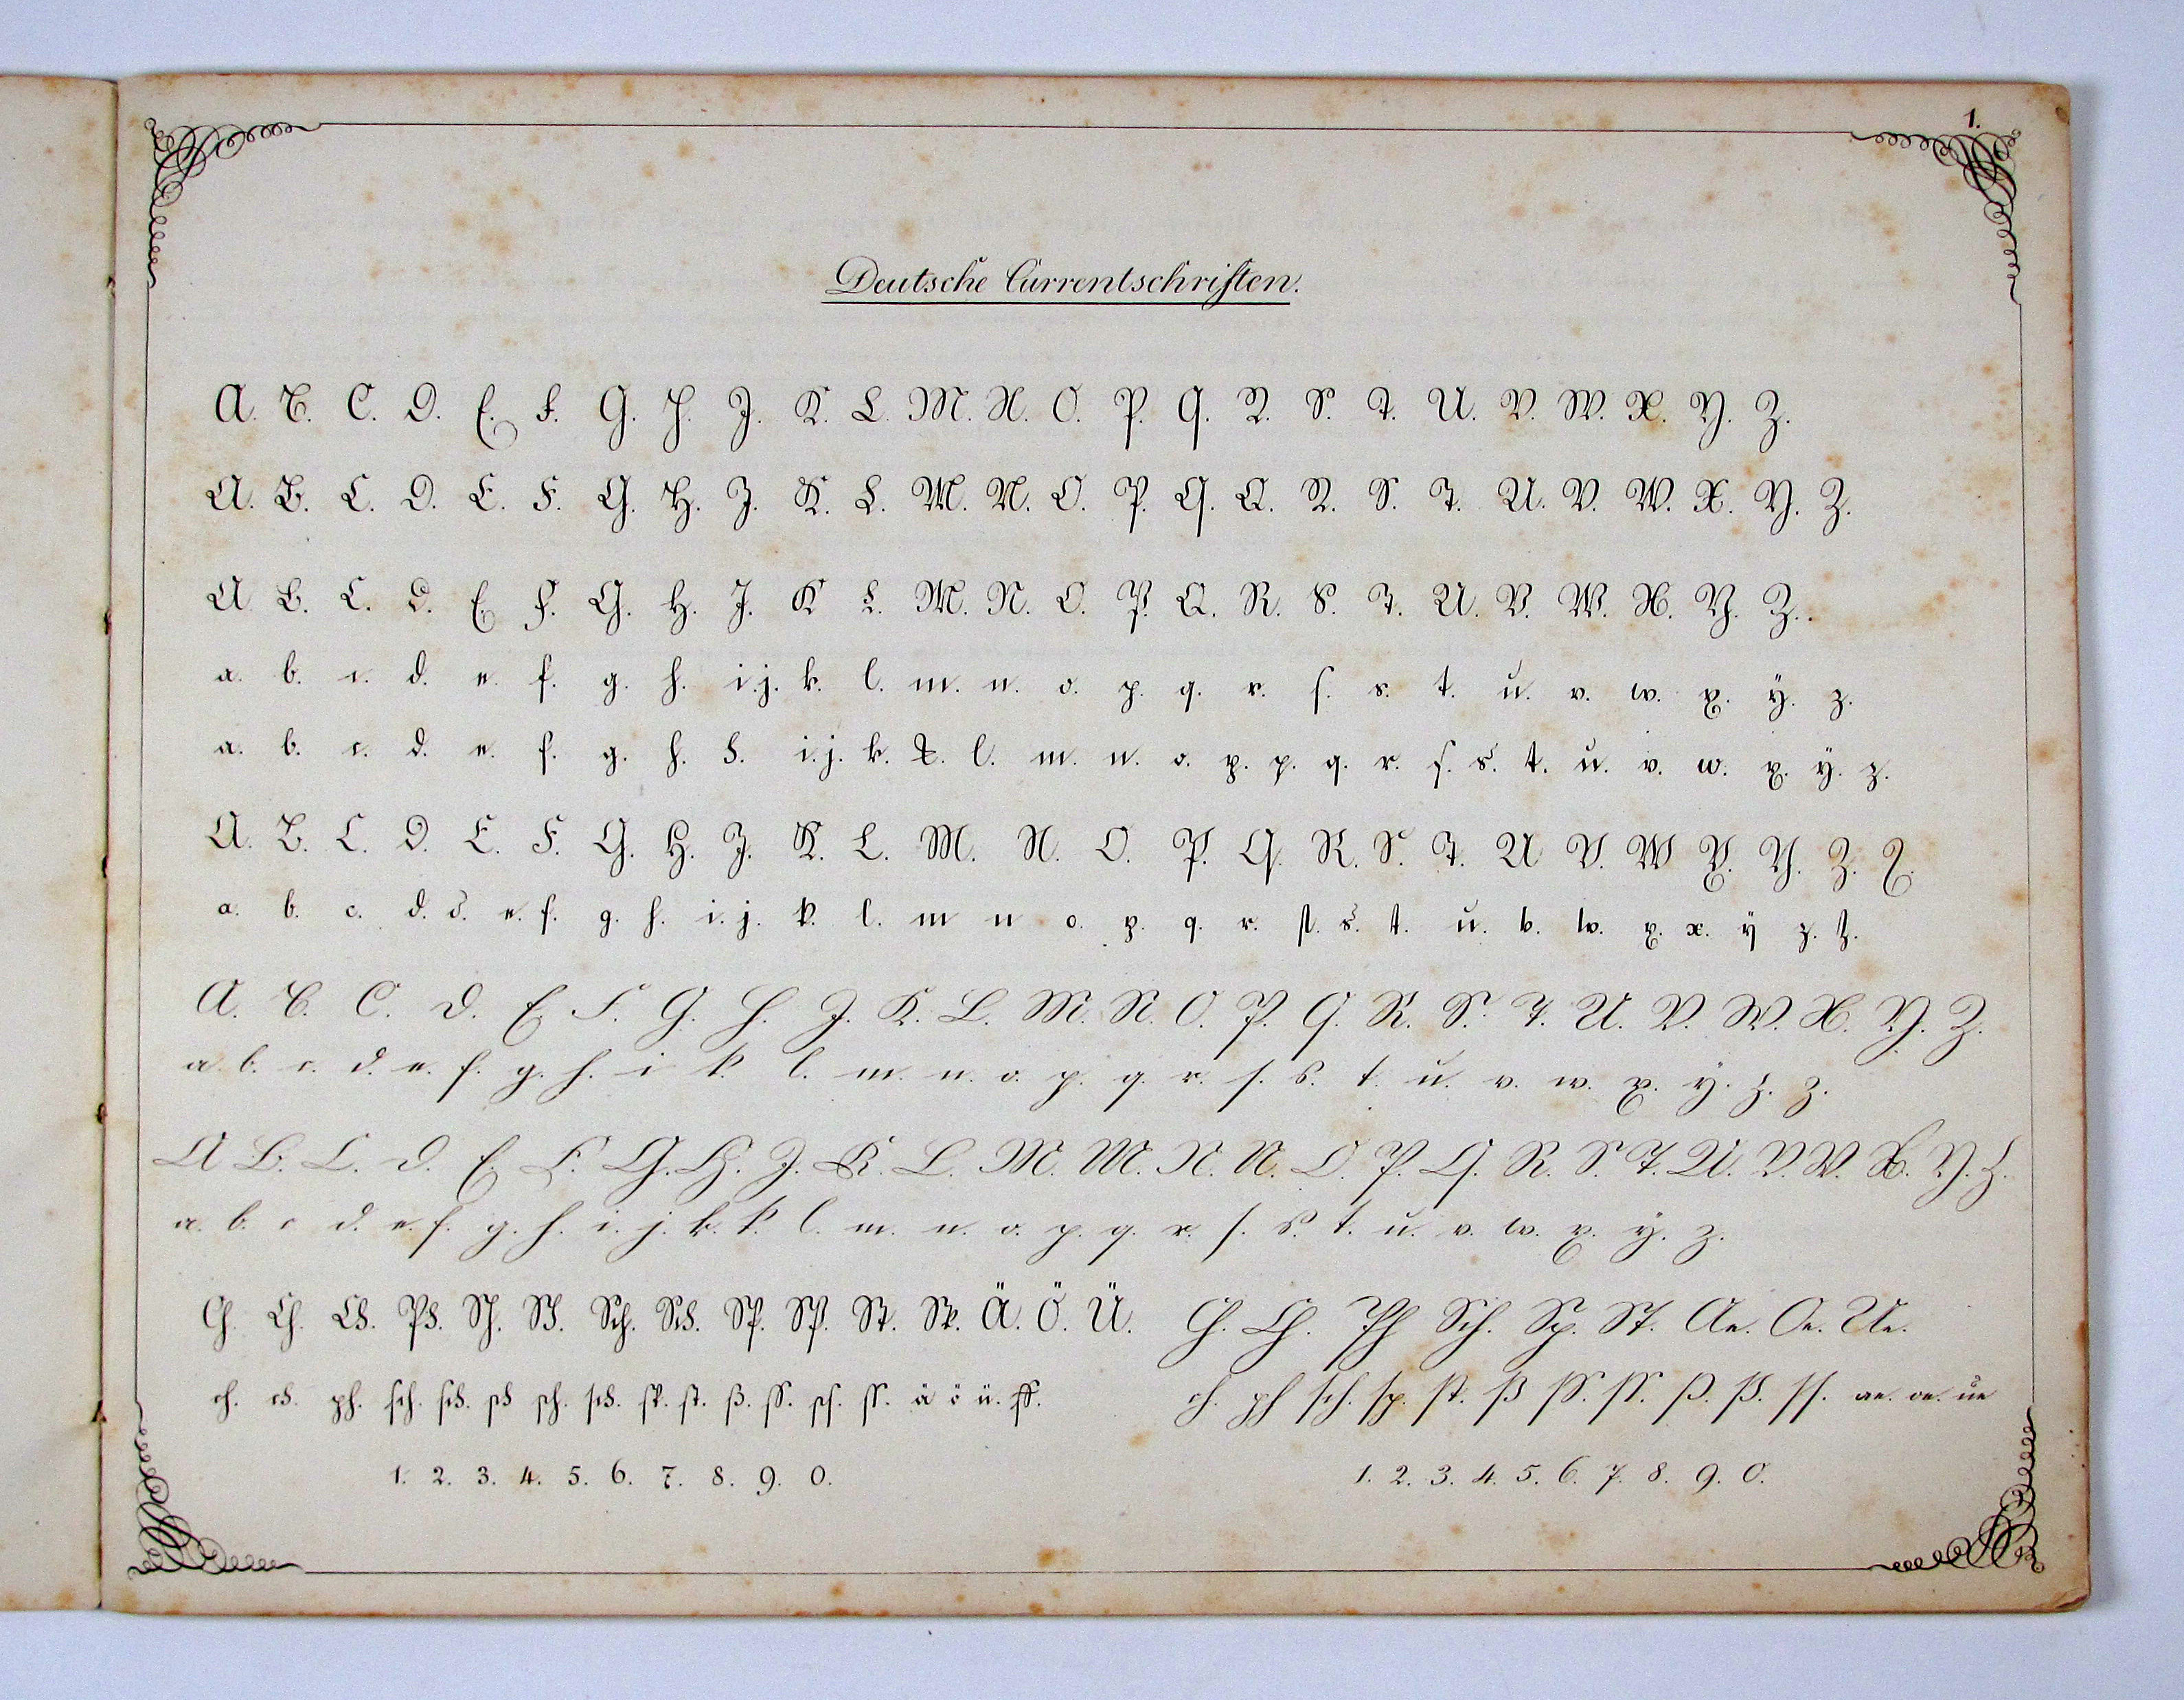 1.
Deutsche Currentschriften.
A. B. C. D. E. F. G. H. J. K. L. M. N. O. P. Q. R. S. T. U. V. W. X. Y. Z.
A. B. C. D. E. F. G. H. J. K. L. M. N. O. P. Q. Q. R. S. T. U. V. W. X. Y. Z.
A. B. C. D. E F. G. H. J. K L. M. N. O. P. Q. R. S. T. U. V. W. X. Y. Z.
a. b. c. d. e. f. g. h. i. j. k. l. m. n. o. p. q. r. ſ. s. t. u. v. w. x. y. z.
a. b. c. d. e. f. g. h. h. i. j. k. k. l. m. n. o. p. p. q. r. ſ. s. t. u. v. w. x. y. z.
A. B. C. D. E. F. G. H. J. K. L. M. N. O. P. Q. R. S. T. U V. W X. Y. Z. Z.
a. b. c. d. d. e. f. g. h. i. j. k. l. m n o. p. q. r. ſ. s. t. u. v. w. x. x. y z. z.
A. B. C. D. E F. G. H. J. K. L. M. N. O. P. Q. R. S. T. U. V. W. X. Y. Z.
a. b. c. d. e. f. g. h. i k. l. m. n. o. p. q. r. ſ. s. t. u. v. w. x. y. z. z.
A B. C. D. E. F. G. H. J. K. L. M. M. N. N. O. P. Q. R. S. T. U. V. W. X. Y. Z.
a. b. c d. e. f. g. h. i. j. k. k. l. m. n. o. p. q. r. ſ. s. t. u. v. w. x. y. z.
Ch. Ch. Ch. Ph. Sh. Sh. Sch. Sch. Sp. Sp. St. St. Ä. Ö. Ü. Ch. Ch. Ph Sch. Sp. St. Ae. Oe. Ue.
ch. ch. ph. ſch. ſch. ſch ſch. ſch. ſt. ſt. ß. ſſ. ſſ. ä ö ü. ch. ph ſch. ſp. ſt. ß ſſ. ſſ. ß. ß. ſſ. ae. oe. ue
1. 2. 3. 4. 5. 6. 7. 8. 9. 0. 1. 2. 3. 4. 5. 6. 7. 8. 9. 0.